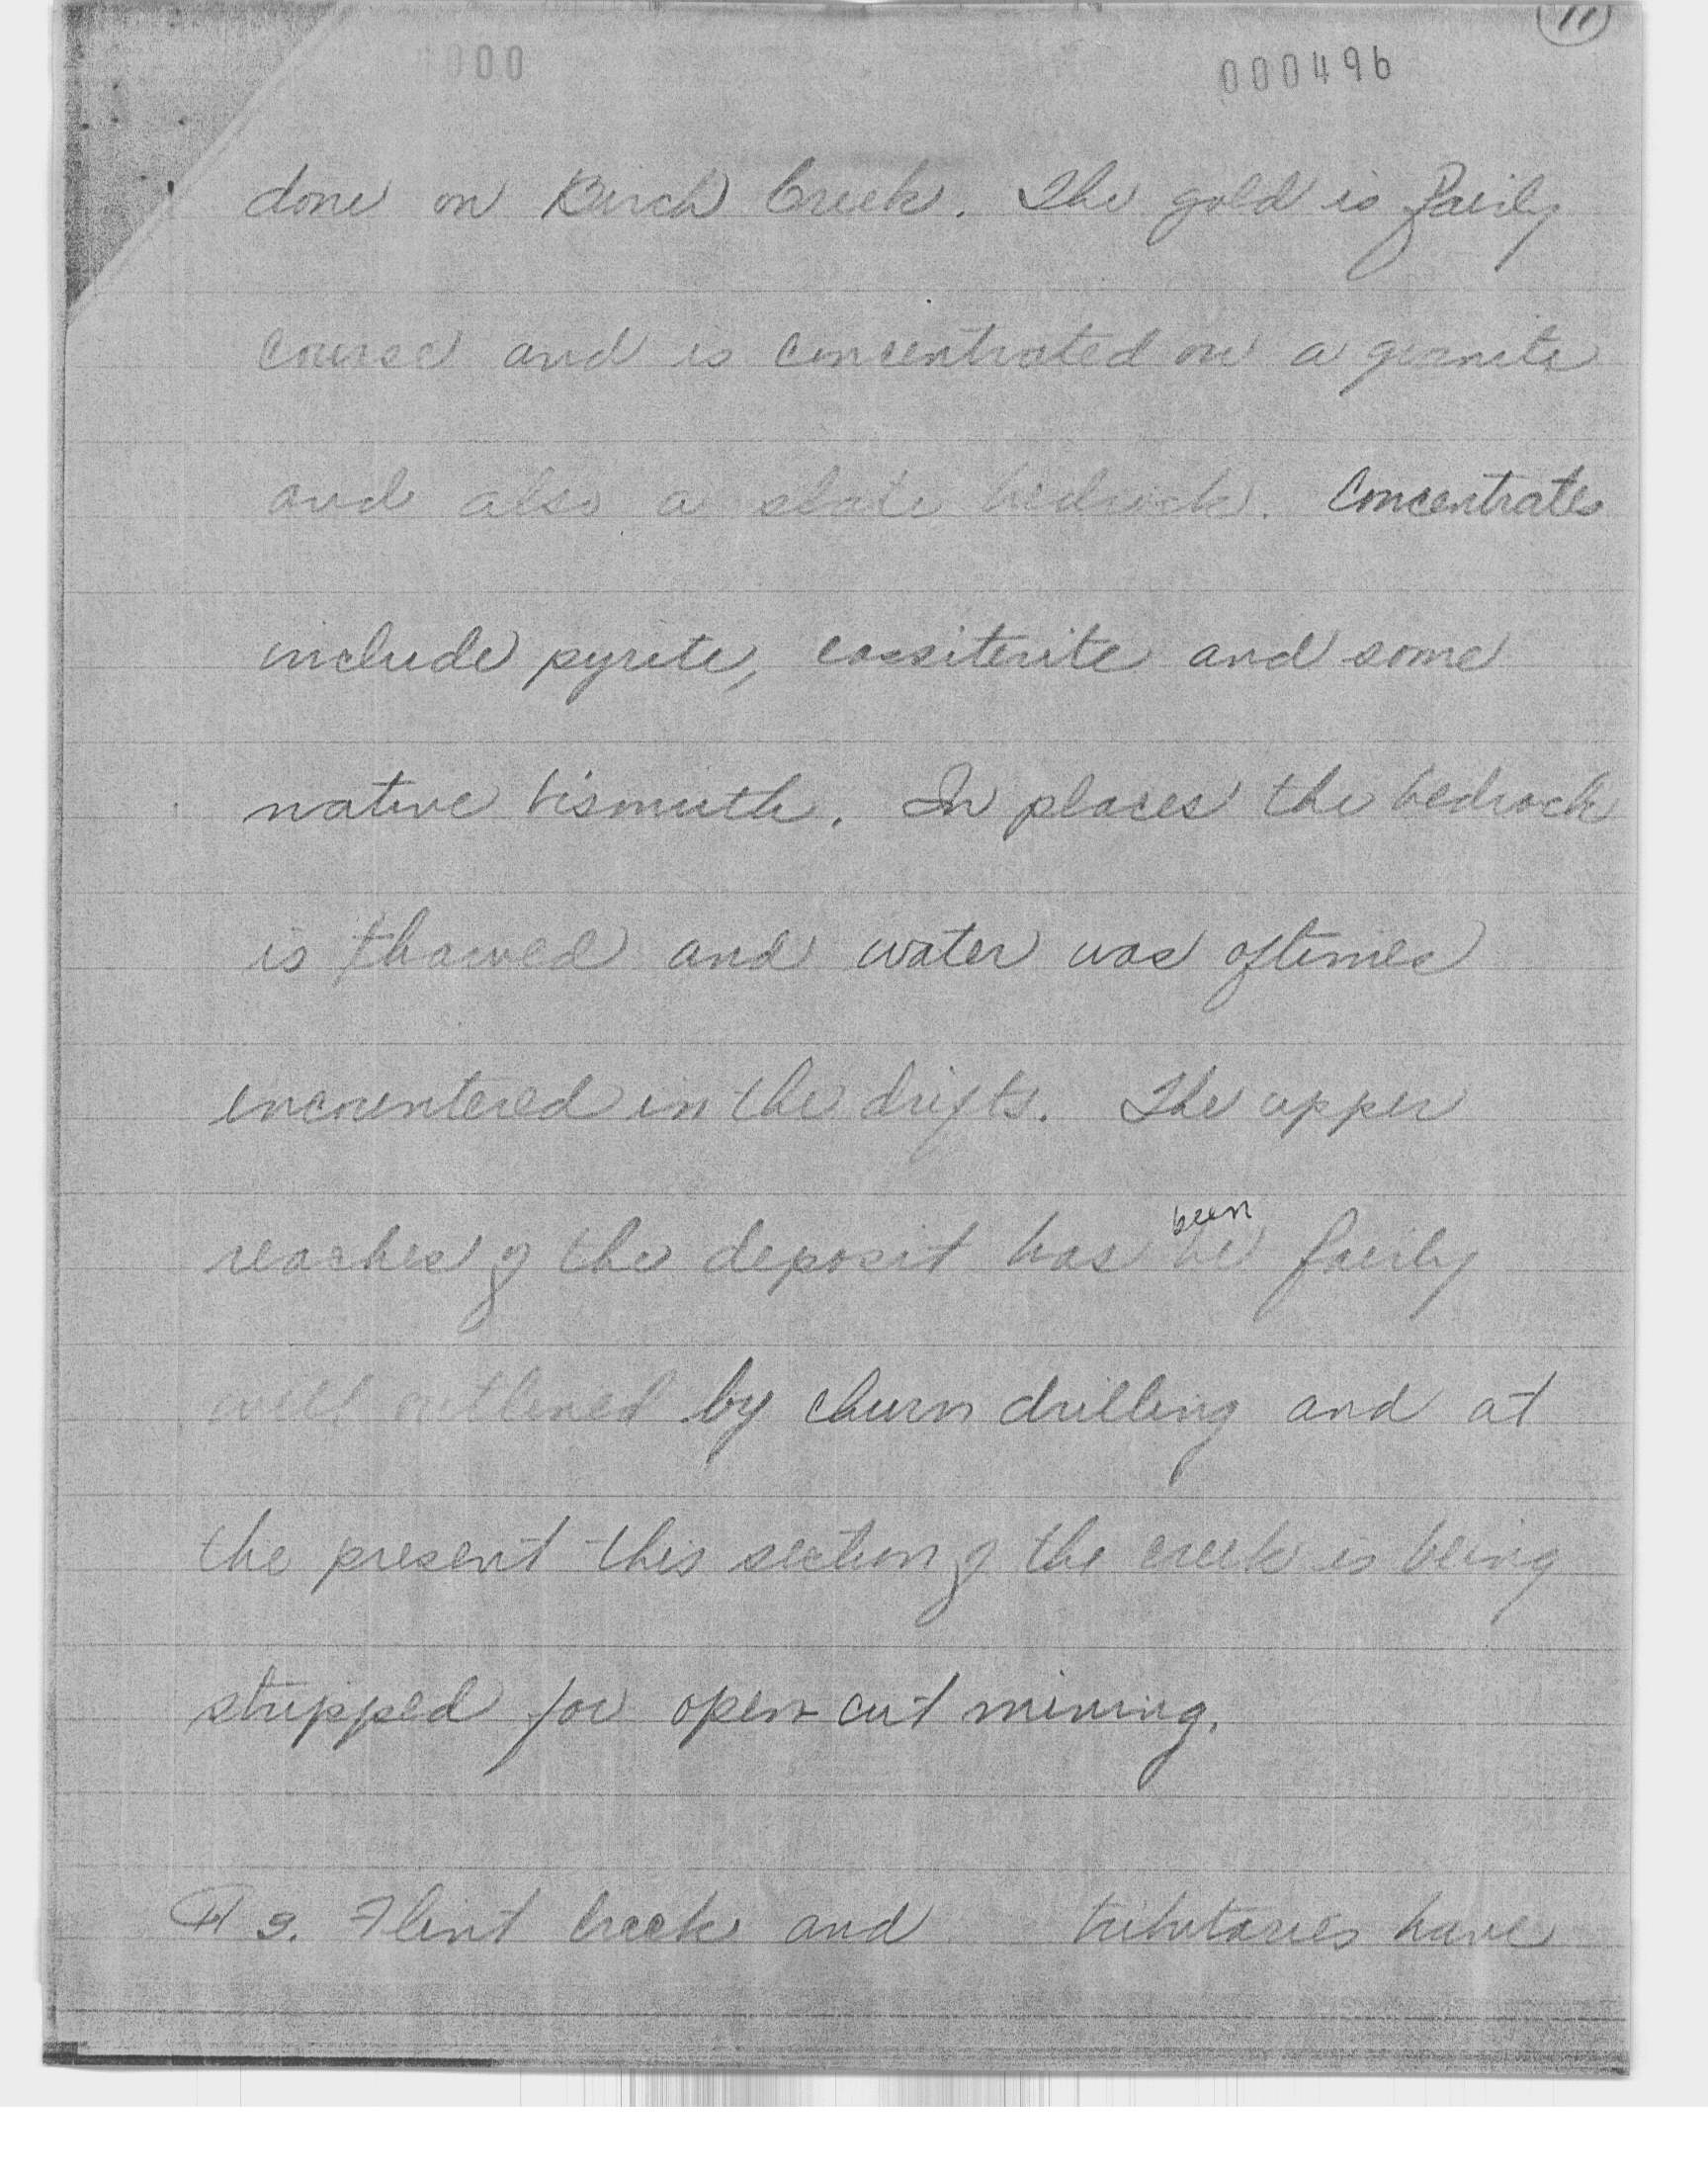 11
000
000496
done on Birch Creek. The gold is fairly
course and is concentrated on a granite
and also a slate bedrock. Concentrates
include pyrite, cassiterite and some
native bismuth. In places the bedrock
is thawed and water was oftimes
encountered in the drifts. The upper
been
reaches of the deposit has be fairly
well outlined by churn drilling and at
the present this section of the creek is being
stripped for open-cut mining.
¶ 3. Flint Creek and tributaries have